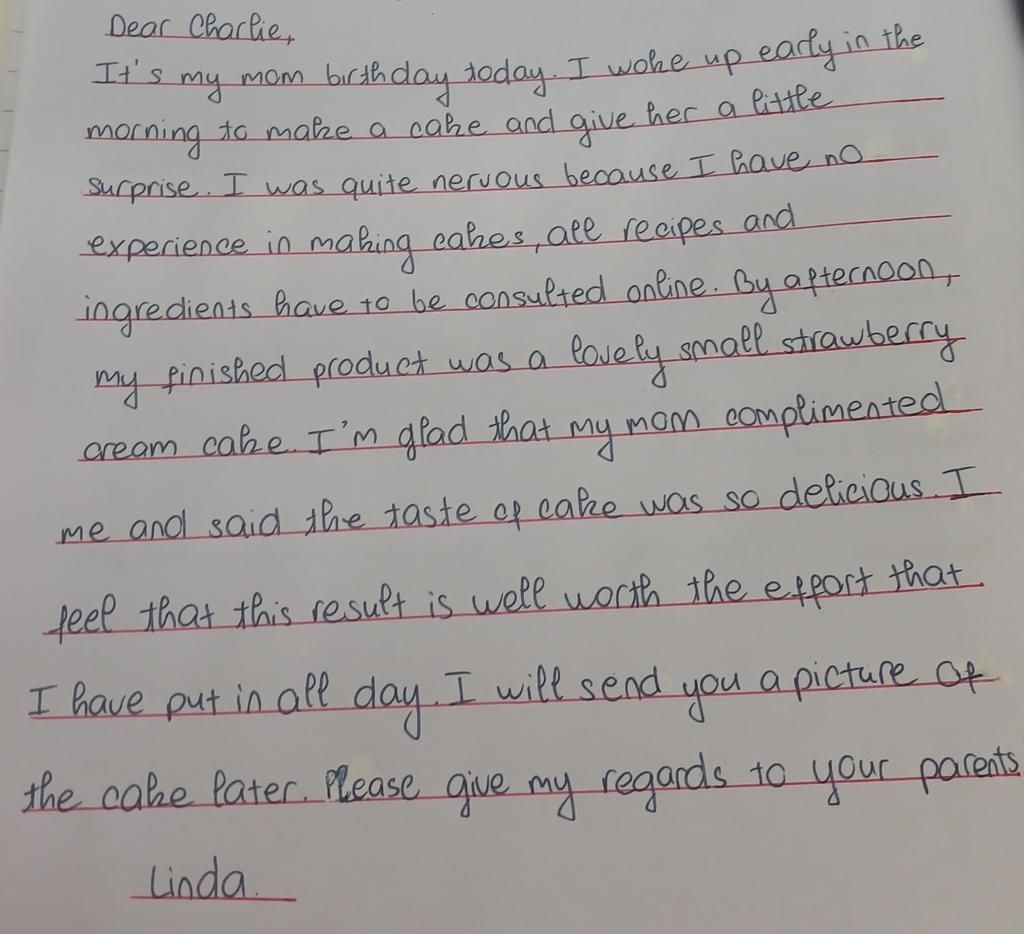 Dear Charlie,
It's my mom birthday today. I woke up early in the
morning to make a cake and give her a little
surprise. I was quite nervous because I have no
experience in making cakes, all recipes and
ingredients have to be consulted online. By afternoon,
my finished product was a lovely small strawberry
cream cake. I'm glad that my mom complimented
me and said the taste of cake was so delicious. I
feel that this result is well worth the effort that
I have put in all day. I will send you a picture of
the cake later. Please give my regards to your parents
Linda.